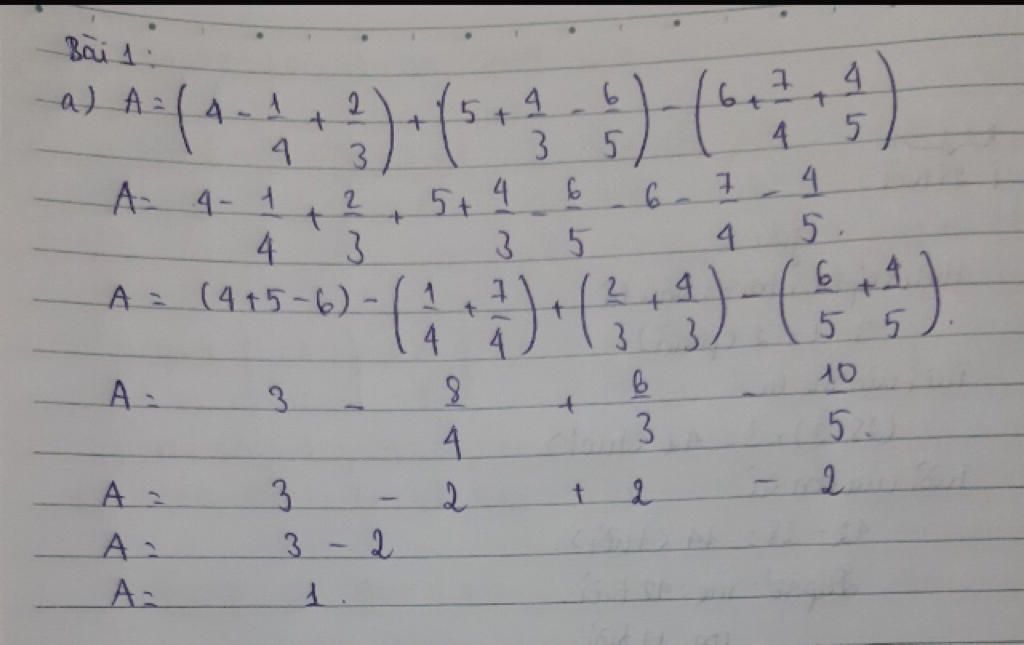 Bài 1:
a) A = (4 - 1/4 + 2/3) + (5 + 4/3 - 6/5) - (6 + 7/4 + 4/5)
A = 4 - 1/4 + 2/3 + 5 + 4/3 - 6/5 - 6 - 7/4 - 4/5.
A = (4 + 5 - 6) - (1/4 + 7/4) + (2/3 + 4/3) - (6/5 + 4/5).
A = 3 - 8/4 + 6/3 - 10/5.
A = 3 - 2 + 2 - 2
A = 3 - 2
A = 1.